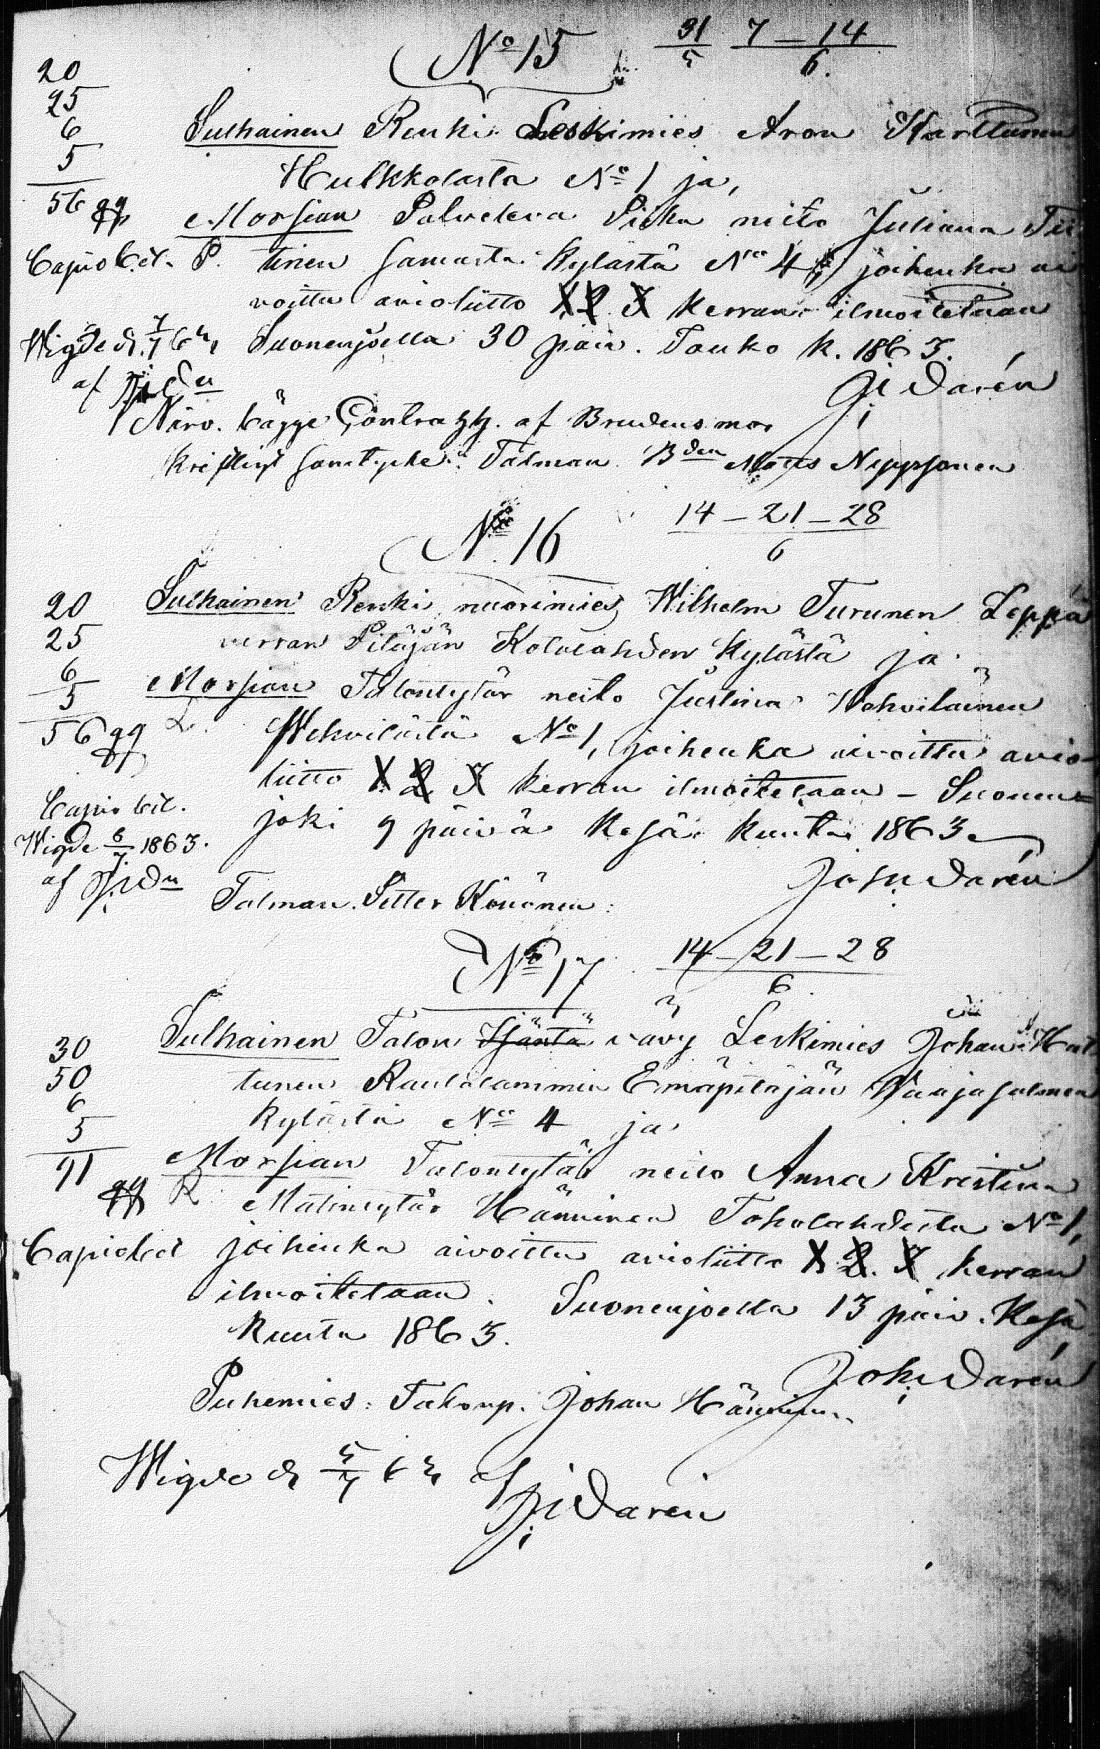 No 15 31/5 7 – 14/6.
20
25
6
5
56
Sulhainen Renki Leskimies Aron Karttunen
Hulkkolasta No 1 ja,
Morsian Palveleva Piika neito Juliana Tii
Capio Cit. P. tinen samasta kylästä No 4, joihenka ai
voittu avioliitto 1. 2. 3 kerran ilmoitetaan
Suonenjoella 30 päiv. Touko k. 1863.
Wigde d. 7/7 63
af
Darén
Contra af Brudens mor
Talman Bden Mats Nyyssönen
No 16 14 – 21 – 28/6
20
25
6
5
56
Sulhainen Renki nuorimies, Wilhelm Turunen Leppä
virran Pitäjän Kotalahden kylästä ja
Morsian Talontytär neito Justina Wehviläinen
Wehvilästä No 1, joihenka aivoittu avio-
liitto 1. 2. 3 kerran ilmoitetaan – Suonen=
joki 9 päivä Kesä kuuta 1863.
Capio Cit.
Wigde 6/7 1863.
af
Joh Darén
Talman Petter Könönen:
No 17 14 – 21 – 28/6.
30
50
6
5
91
Sulhainen Talon vävy Leskimies Johan Hut
tunen Rautalammin Emäpitäjän Waajasalmen
kylästä No 4 ja
Morsian Talontytär neito Anna Kristina
R Matintytär Hänninen Toholahdesta No 1,
Capio Cit joihenka aivoittu avioliitto 1. 2. 3 kerran
ilmoitetaan. Suonenjoella 13 päiv. Kesä
kuuta 1863.
Joh Darén
Puhemies: Talonp. Johan Hänninen
Wigde d 5/7 63 af
Darén